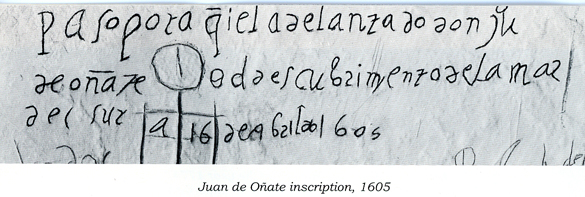 paso por aq̄i el adelantado don jũ
de oñate del descubrimento de la mar
del sur a 16 de abril del 1605
Juan de Oñate inscription, 1605